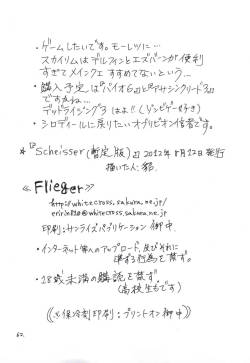 ・ゲームしたいです。モーレツに…
スカイリムはデルフィンとエズバーンが便利
すぎてメインクエすすめてないという…
・購入予定は『バイオ6』と『アサシンクリード3』
ですかね…
デッドライジング3はよ!!(ゾンビゲー好き)
・シロディールに戻りたいオブリビオン信者です。
*『Scheisser(暫定版)』2012年8月12日発行
描いた人:猫.
≪Flieger≫
http://whitecross.sakura.ne.jp/
@whitecross.sakura.ne.jp
印刷:サンライズパブリケーション御中
・インターネット等へのアップロード、及びそれに
準ずる行為を禁ず。
・18歳未満の購読を禁ず
(高校生もです)
((※保冷剤印刷:プリントオン御中))
62.